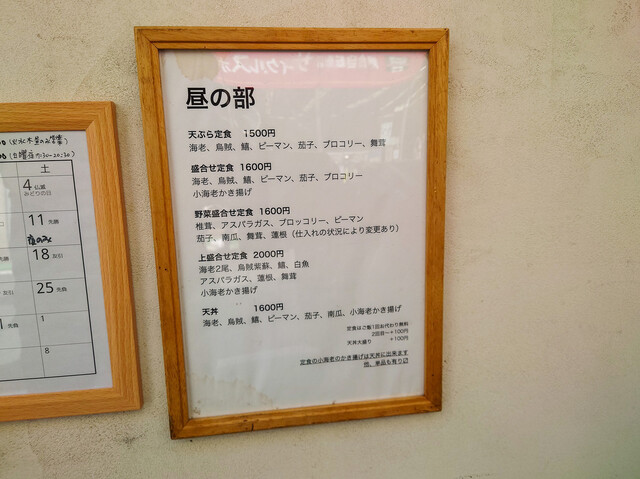 昼の部
天ぷら定食 1500円
海老、烏賊、鱚、ピーマン、茄子、ブロコリー、舞茸
盛合せ定食 1600円
海老、烏賊、鱚、ピーマン、茄子、ブロコリー
小海老かき揚げ
野菜盛合せ定食 1600円
椎茸、アスパラガス、ブロッコリー、ピーマン
茄子、南瓜、舞茸、蓮根（仕入れの状況により変更あり）
上盛合せ定食 2000円
海老2尾、烏賊紫蘇、鱚、白魚
アスパラガス、蓮根、舞茸
小海老かき揚げ
天丼 1600円
海老、烏賊、鱚、ピーマン、茄子、南瓜、小海老かき揚げ
定食はご飯1回お代わり無料
2回目〜+100円
天丼大盛り +100円
定食の小海老のかき揚げは天丼に出来ます
他、単品も有り〼
土
4 仏滅
みどりの日
11 先勝
昼のみ
18 友引
25 先負
1
8